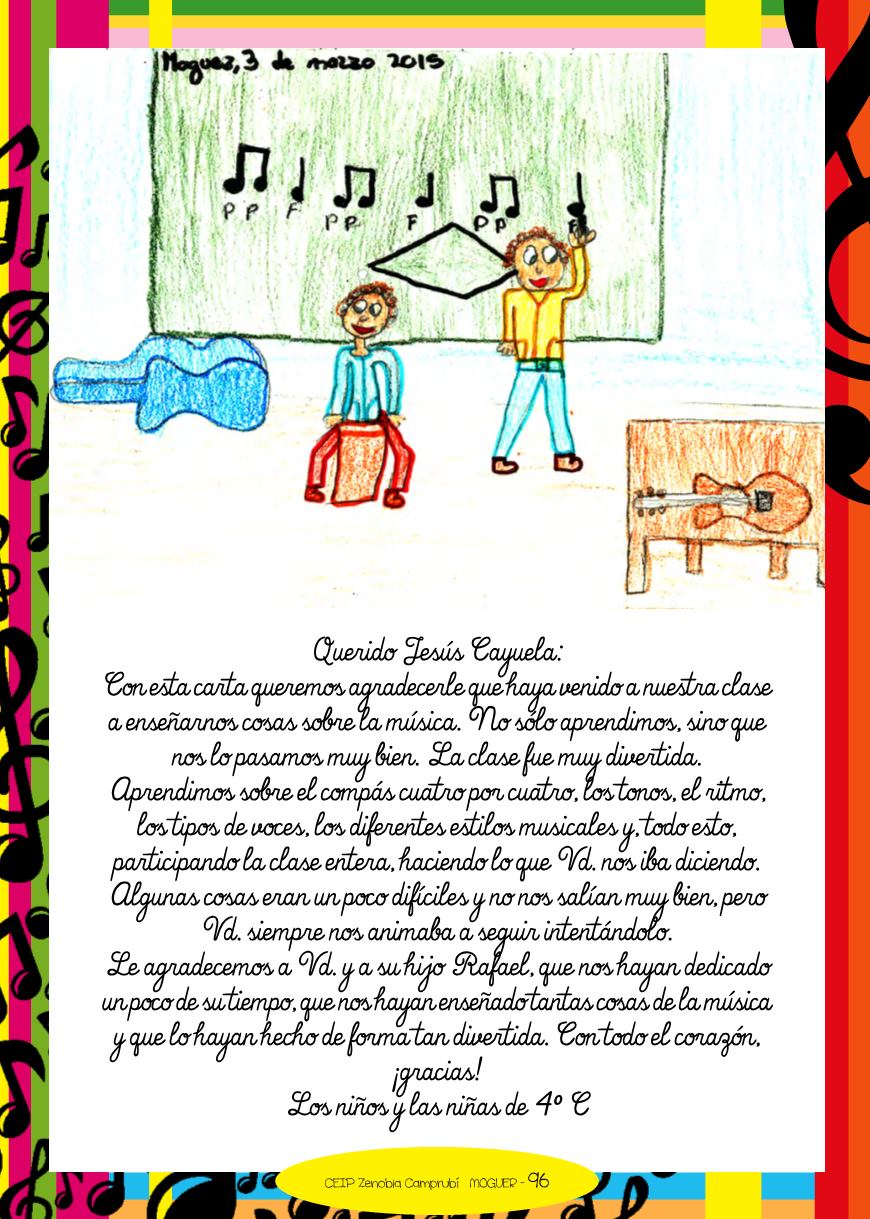 Moguer, 3 de marzo 2015
P P F P P F P P
Querido Jesús Cayuela:
Con esta carta queremos agradecerle que haya venido a nuestra clase
a enseñarnos cosas sobre la música. No sólo aprendimos, sino que
nos lo pasamos muy bien. La clase fue muy divertida.
Aprendimos sobre el compás cuatro por cuatro, los tonos, el ritmo,
los tipos de voces, los diferentes estilos musicales y, todo esto,
participando la clase entera, haciendo lo que Vd. nos iba diciendo.
Algunas cosas eran un poco difíciles y no nos salían muy bien, pero
Vd. siempre nos animaba a seguir intentándolo.
Le agradecemos a Vd. y a su hijo Rafael, que nos hayan dedicado
un poco de su tiempo, que nos hayan enseñado tantas cosas de la música
y que lo hayan hecho de forma tan divertida. Con todo el corazón,
¡gracias!
Los niños y las niñas de 4º C
CEIP Zenobia Camprubí MOGUER - 96